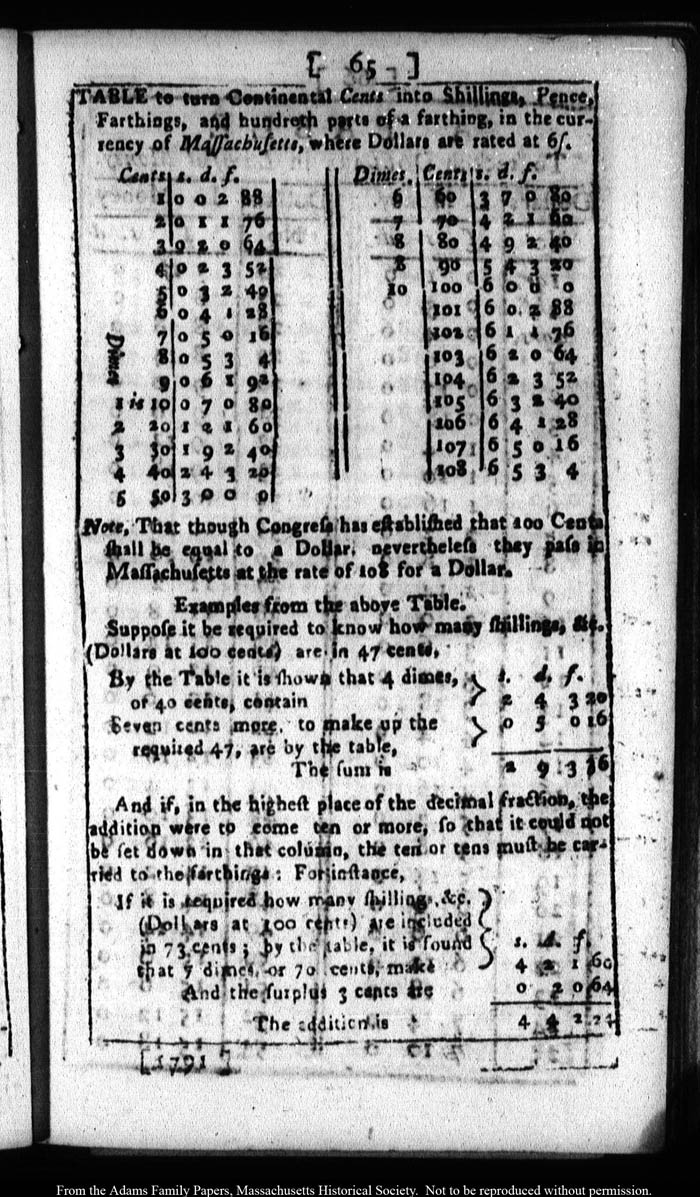 [ 65 ]
TABLE to turn Continental Cents into Shillings, Pence,
Farthings, and hundreth parts of a farthing, in the cur-
rency of Maſſachuſetts, where Dollars are rated at 6ſ.
Cents s. d. f. Dimes. Cents s. d. f.
1 0 0 2 88 6 60 3 7 0 80
2 0 1 1 76 7 70 4 2 1 60
3 0 2 0 64 8 80 4 9 2 40
4 0 2 3 52 8 90 5 4 3 20
5 0 3 2 40 10 100 6 0 0 0
6 0 4 1 28 101 6 0 2 88
7 0 5 0 16 102 6 1 1 76
8 0 5 3 4 103 6 2 0 64
9 0 6 1 92 104 6 2 3 52
Dimes
1 is 10 0 7 0 80 105 6 3 2 40
2 20 1 2 1 60 106 6 4 1 28
3 30 1 9 2 40 107 6 5 0 16
4 40 2 4 3 20 108 6 5 3 4
5 50 3 0 0 0
Note, That though Congreſs has eſtabliſhed that 100 Cents
ſhall be equal to a Dollar, nevertheleſs they paſs in
Maſſachuſetts at the rate of 108 for a Dollar.
Examples from the above Table.
Suppoſe it be required to know how many ſhillings, &c.
(Dollars at 100 cents) are in 47 cents,
By the Table it is ſhown that 4 dimes, s. d. f.
or 40 cents, contain 2 4 3 20
Seven cents more, to make up the 0 5 0 16
required 47, are by the table,
The ſum is 2 9 3 36
And if, in the higheſt place of the decimal fraction, the
addition were to come ten or more, ſo that it could not
be ſet down in that column, the ten or tens muſt be car-
ried to the farthings: For inſtance,
If it is required how many ſhillings, &c.
(Dollars at 100 cents) are included
in 73 cents; by the table, it is found s. d. f.
that 7 dimes, or 70 cents, make 4 2 1 60
And the ſurplus 3 cents are 0 2 0 64
The addition is 4 4 2 24
[1791]
From the Adams Family Papers, Massachusetts Historical Society. Not to be reproduced without permission.